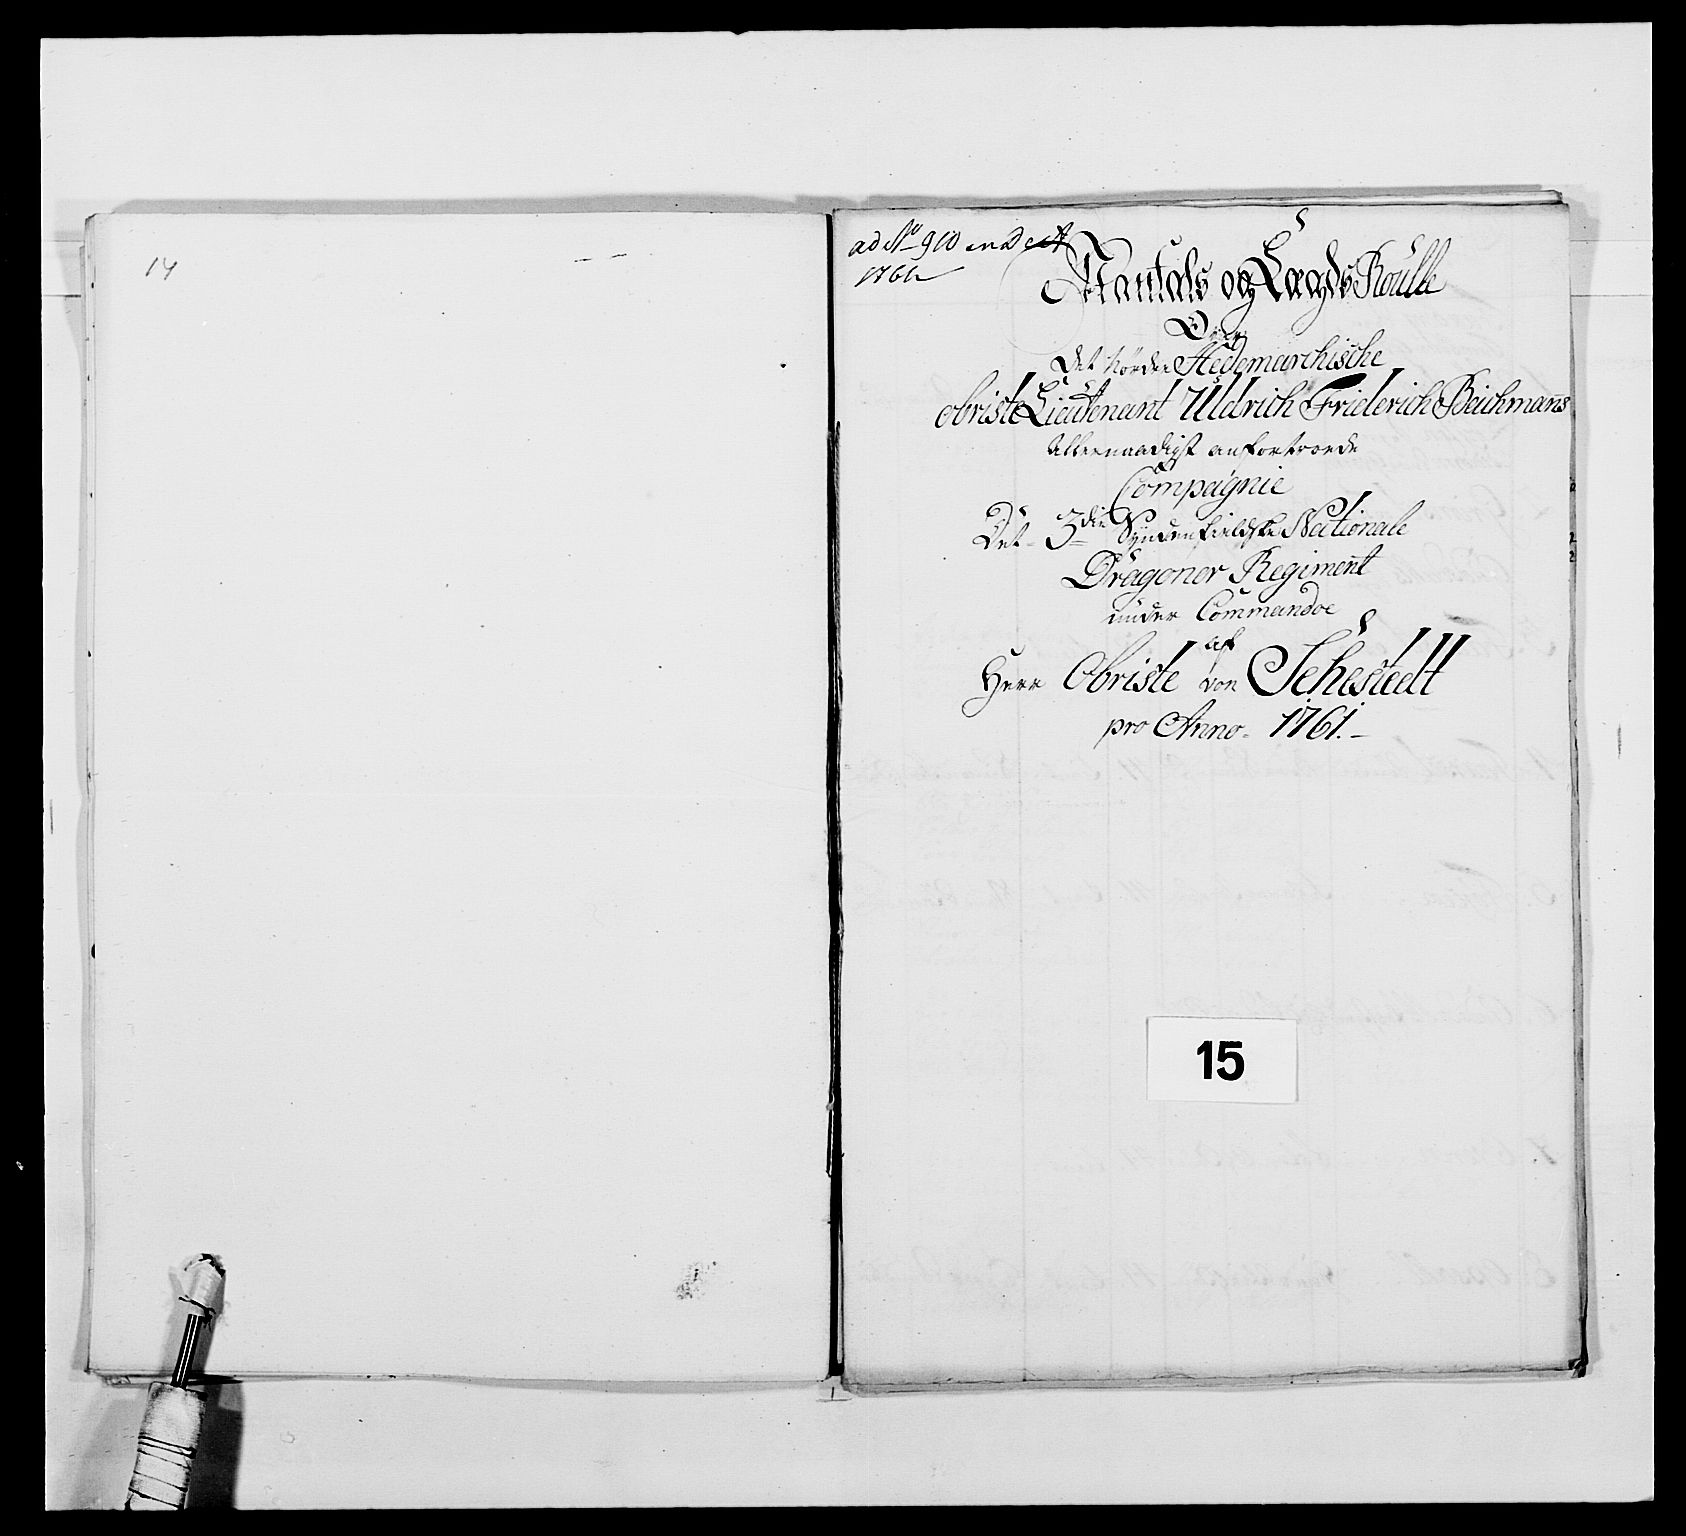 14
ad No 910 
1761
Mantals og Lægds Roulle
Over
Det Nordre Hedemarchische
Obriste Lieutenant Uldrich Friderich Beichmans
Allernaadigst anfortroede
Compagnie
Det 3die Syndenfieldske Nationale
Dragoner Regiment
under Commandoe
af
Herr Obriste von Sehestedt
pro Anno 1761.
15